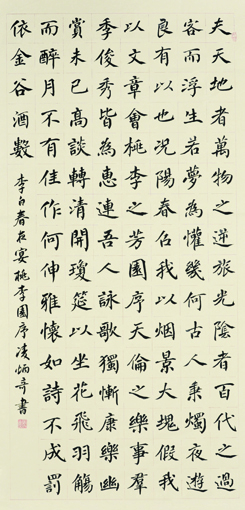 夫天地者萬物之逆旅光陰者百代之過
客而浮生若夢為懽幾何古人秉燭夜遊
良有以也況陽春召我以烟景大塊假我
以文章會桃李之芳園序天倫之樂事羣
季俊秀皆為惠連吾人詠歌獨慚康樂幽
賞未已高談轉清開瓊筵以坐花飛羽觴
而醉月不有佳作何伸雅懷如詩不成罰
依金谷酒數
李白春夜宴桃李園序凌炳奇書